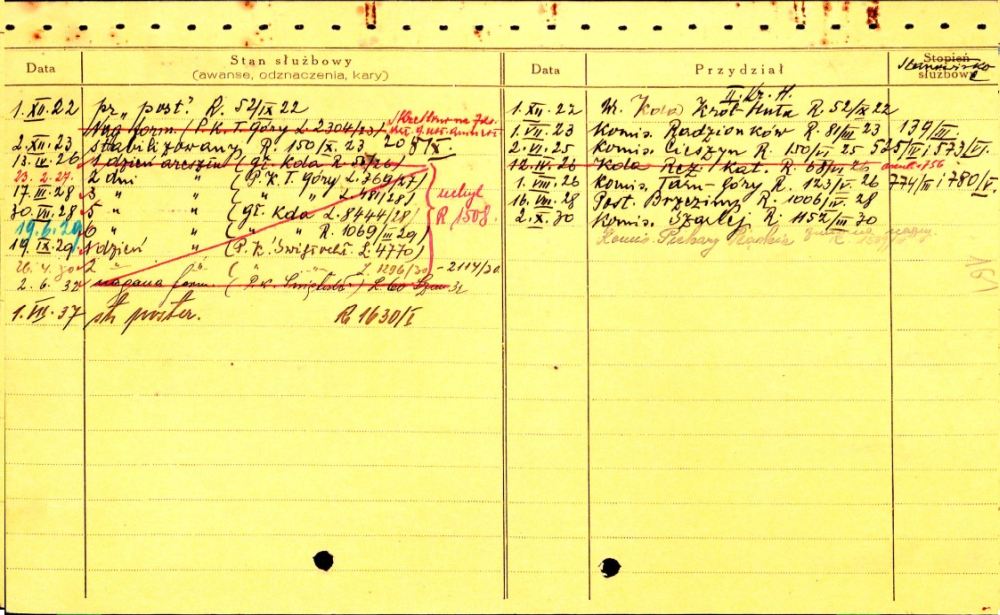 Data
Stan służbowy
(awanse, odznaczenia, kary)
1.XII.22 pr. "post" R. 52/IX 22
Nag. form. (P.K.T. Góry L. 2304/23)
2.XII.23 stabilizowany R. 150/X. 23 208/X.
13.IV.26 1 dzień aresztu (gł. kda R. 58/26)
23.2.27. 2 dni " (P.K.T. Góry L. 369/27)
17.III.28 3 " " ( " " " L. 481/28)
30.VII.28 5 " " (gł. kda L. 8444/28)
19.6.29 6 " " ( " R. 1069/III 29)
19.IX.29. 1 dzień " (P.K. Święt. L. 4770)
26.4.30 2 " " L. 1296/30 - 2114/30
2.6.32 nagana form. (P.K. Święt.) L. 60 32
uchyl
R 1508
1.VII.37 st. poster. R 1630/I
Data
Przydział
Stopień
służbowy
Stanowisko
II. kr. H.
1.XII.22 M. Kda Król Huta R. 52/IX 22
1.VII.23 Komis. Radzionków R. 81/III 23 139/III.
2.VI.25 Komis. Cieszyn R. 150/VI 25 525/IV; 573/VI.
12.IV.26 Kda Rez. Kat. R. 68/VI 26 756
1.VIII.26 Komis. Tarn-Góry R. 123/V. 26 774/III i 780/V.
16.VIII.28 Post. Brzeziny R. 1006/IV. 28
2.X.30 Komis. Szarlej R. 1152/III 30
Komis. Piekary Śląskie zmiana nazwy